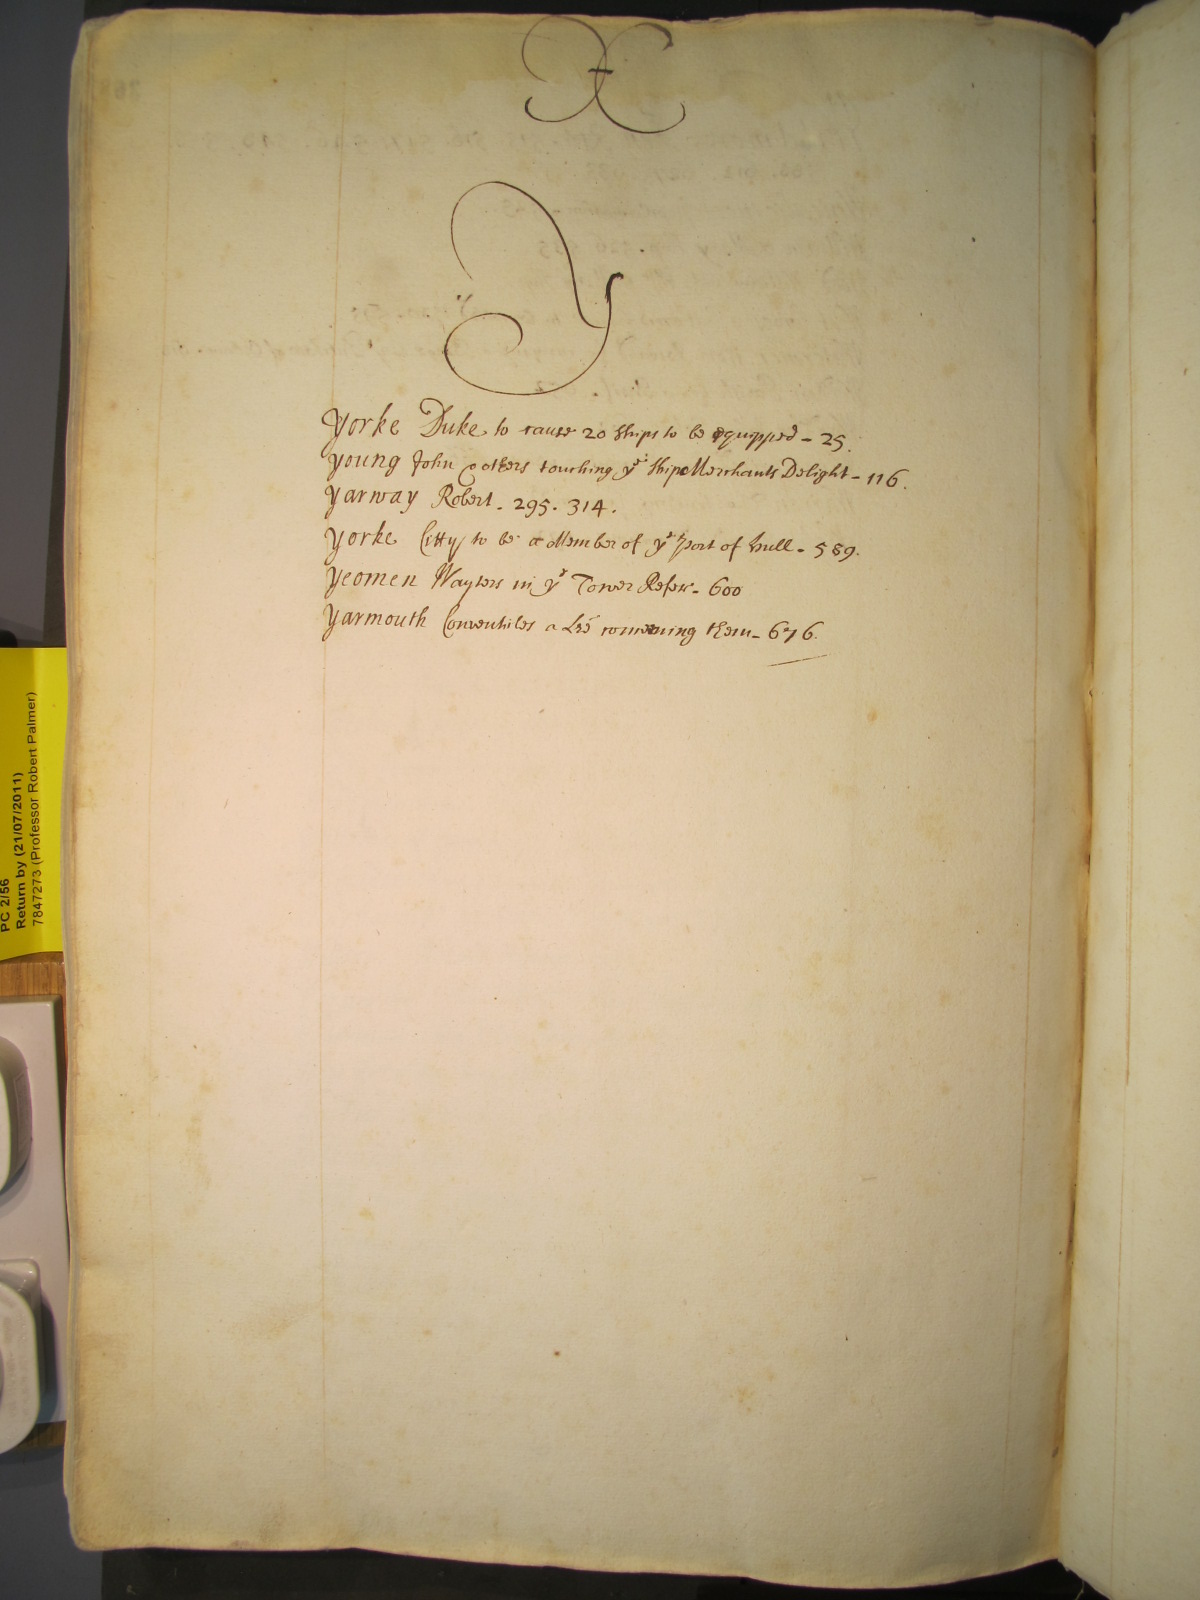 X
Y
Yorke Duke to cause 20 Ships to be equipped - 25.
Young John & others touching ye Ship Merchants Delight - 116.
Yarway Robert - 295. 314.
Yorke Citty to be a Member of ye Port of Hull - 589.
Yeomen Wayters in ye Tower Refer - 600
Yarmouth Conventiles a Lre concerning them - 676.
PC 2/56
Return by (21/07/2011)
7847273 (Professor Robert Palmer)